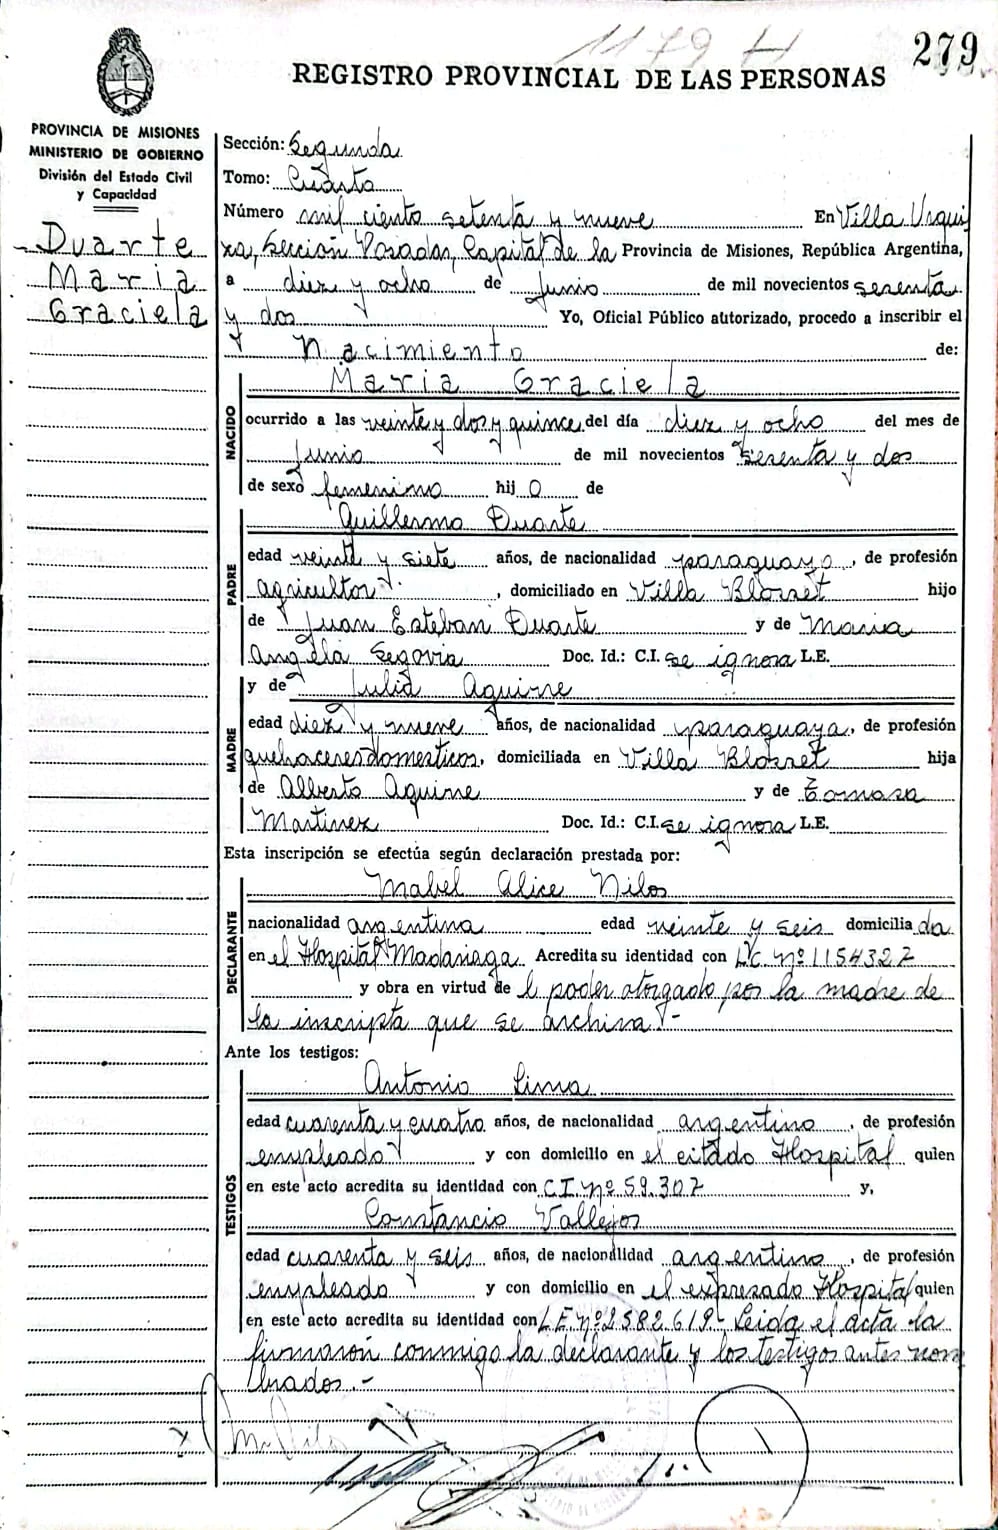 1179 H
279
REGISTRO PROVINCIAL DE LAS PERSONAS
PROVINCIA DE MISIONES
MINISTERIO DE GOBIERNO
División del Estado Civil
y Capacidad
Duarte
Maria
Graciela
Sección: Segunda
Tomo: Cuarto
Número mil ciento setenta y nueve En Villa Urqui
za, Sección Posadas, Capital de la Provincia de Misiones, República Argentina,
a diez y ocho de Junio de mil novecientos sesenta
y dos Yo, Oficial Público autorizado, procedo a inscribir el
Nacimiento de:
NACIDO
Maria Graciela
ocurrido a las veinte y dos y quince del día diez y ocho del mes de
Junio de mil novecientos sesenta y dos
de sexo femenino hij a de
PADRE
Guillermo Duarte
edad veinte y siete años, de nacionalidad paraguayo, de profesión
agricultor, domiciliado en Villa Blosset hijo
de Juan Esteban Duarte y de Maria
Angela Segovia Doc. Id.: C.I. se ignora L.E.
MADRE
y de Julia Aguirre
edad diez y nueve años, de nacionalidad paraguaya, de profesión
quehaceres domesticos, domiciliada en Villa Blosset hija
de Alberto Aguirre y de Tomasa
Martinez Doc. Id.: C.I. se ignora L.E.
Esta inscripción se efectúa según declaración prestada por:
DECLARANTE
Mabel Alice Nilos
nacionalidad argentina edad veinte y seis domicilia da
en el Hospital Madariaga Acredita su identidad con L.C. nº 1154327
y obra en virtud de l poder otorgado por la madre de
la inscripta que se archiva.-
Ante los testigos:
TESTIGOS
Antonio Lima
edad cuarenta y cuatro años, de nacionalidad argentino, de profesión
empleado y con domicilio en el citado Hospital quien
en este acto acredita su identidad con C.I. nº 59.307 y,
Constancio Vallejos
edad cuarenta y seis años, de nacionalidad argentino, de profesión
empleado y con domicilio en el expresado Hospital quien
en este acto acredita su identidad con L.E nº 2582.619.- Leida el acta la
firmaron conmigo la declarante y los testigos antes nom
brados.-